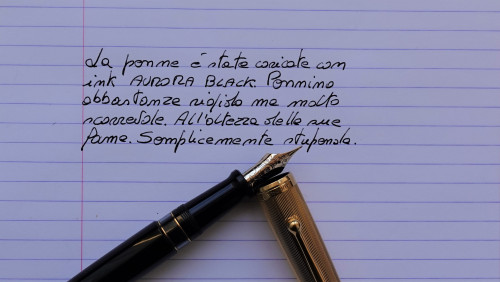 La penna è stata caricata con
ink AURORA BLACK. Pennino
abbastanza rigido ma molto
scorrevole. All'altezza della sua
fama. Semplicemente stupenda.